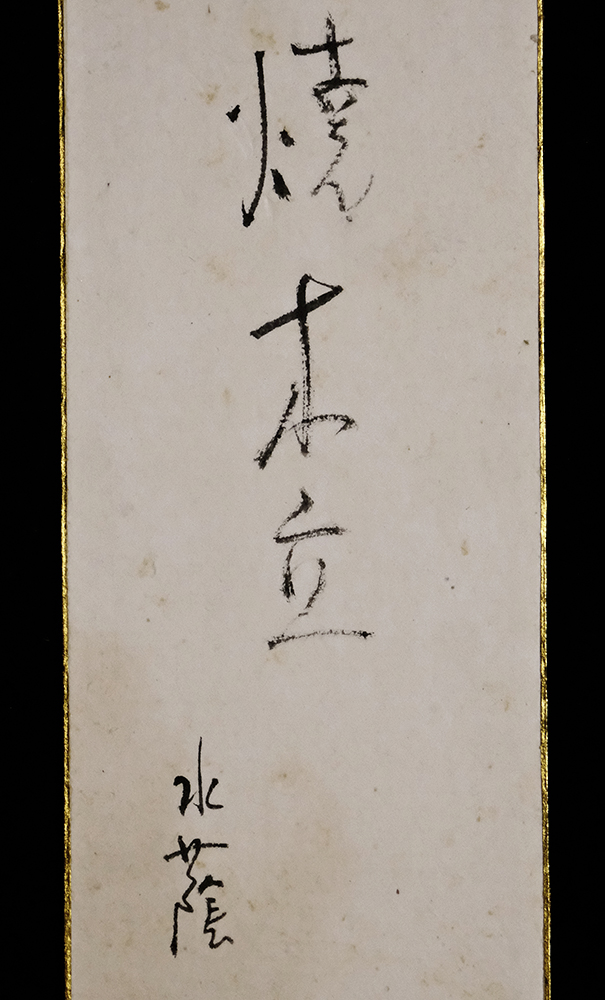 焼木立
水蔭